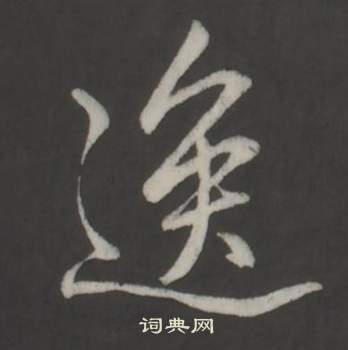 逸
词典网